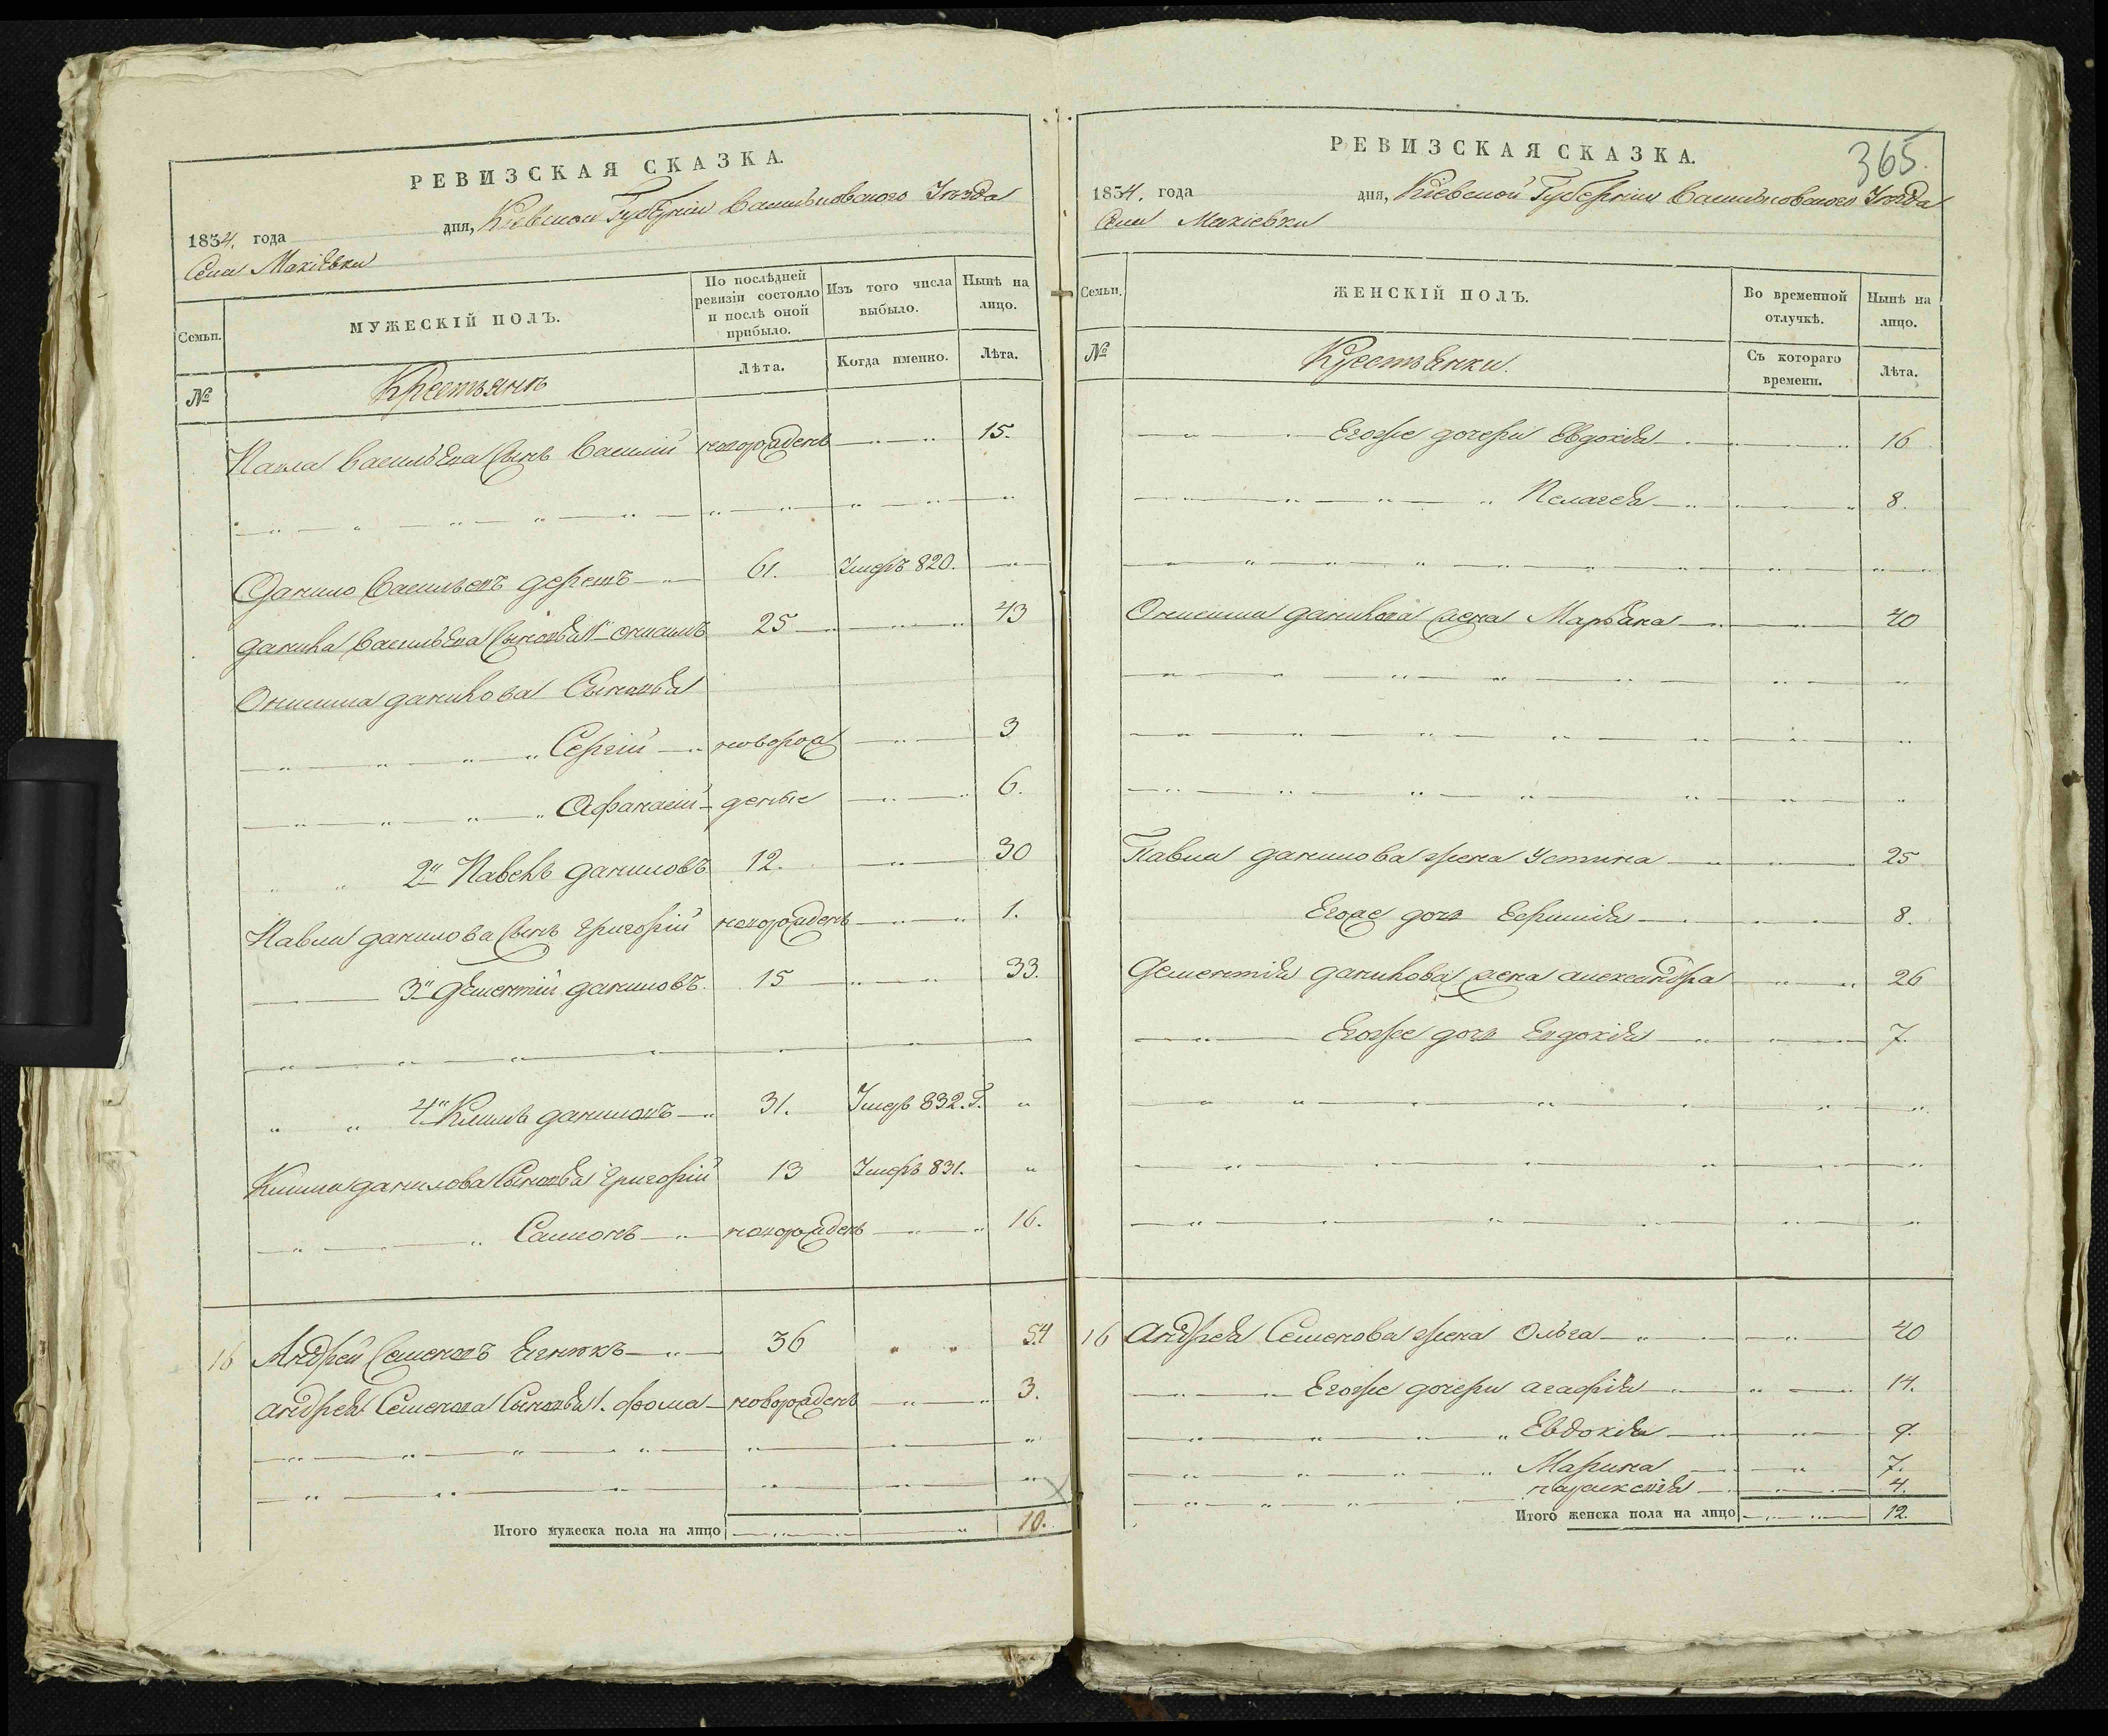 РЕВИЗСКАЯ СКАЗКА.
1834. года дня, Кіевской Губерніи Васильковскаго Уезда
Села Макіевки
Семьи.
МУЖЕСКІЙ ПОЛЪ.
По послѣдней ревизіи состояло и послѣ оной прибыло.
Изъ того числа выбыло.
Нынѣ на лицо.
№
Крестьянъ
Лѣта.
Когда именно.
Лѣта.
Павла Васильева сынъ Василий новорожденъ 15.
Данило Васильевъ 61. Умеръ 820.
Данила Васильева сыновья 1й Онисимъ 25 43
Онисима Данилова Сыновья
Сергій новорож 3
Афанасій деные 6.
2й Павелъ Даниловъ 12. 30
Павла Данилова сынъ Григорій новорожденъ 1.
3й Дементій Даниловъ. 15 33.
4й Климъ Даниловъ 31. Умеръ 832. Г.
Клима Данилова Сыновья Григорій 13 Умеръ 831.
Самсонъ новорожденъ 16.
16 Андрей Семеновъ 36 54
Андрея Семенова Сыновья 1. Фома новорожденъ 3.
Итого мужеска пола на лицо 10.
РЕВИЗСКАЯ СКАЗКА.
365.
1834. года дня, Кіевской Губерніи Васильковскаго Уезда
Села Макіевки
Семьи.
ЖЕНСКІЙ ПОЛЪ.
Во временной отлучкѣ.
Нынѣ на лицо.
№
Крестьянки.
Съ котораго времени.
Лѣта.
Егоже дочери Евдокія 16
Пелагея 8.
Онисима Данилова жена Марьяна 40
Павла Данилова жена Устина 25
Егоже дочь Ефимія 8.
Дементія Данилова жена Александра 26
Егоже дочь Евдокія 7.
16 Андрея Семенова жена Ольга 40
Егоже дочери Агафія 14.
Евдокія 9.
Марина 7.
Параскевія 4.
Итого женска пола на лицо 12.